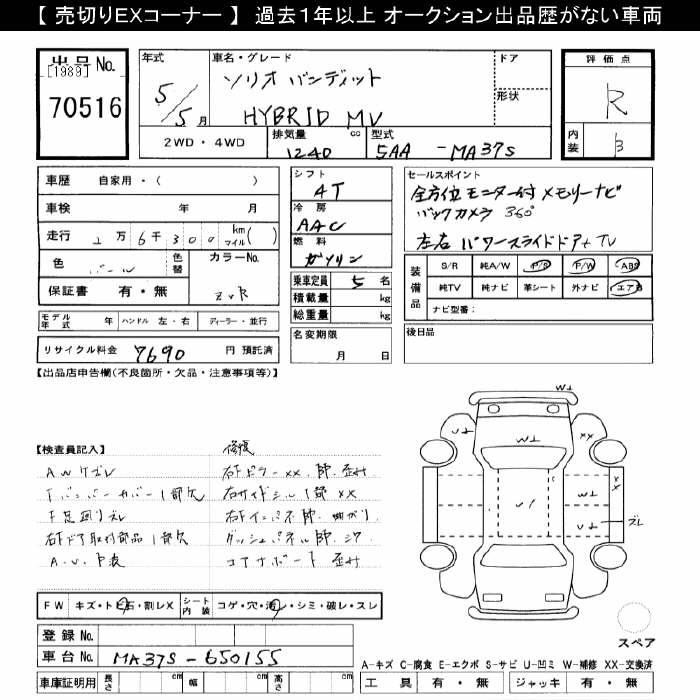 【 売切りEXコーナー 】 過去1年以上 オークション出品歴がない車両
出品 No.
[1989]
70516
年式
5/5月
車名・グレード
ソリオ バンディット
HYBRID MV
ドア
形状
評価点
R
内装
B
2WD・4WD
排気量
1240 cc
型式
5AA-MA37S
車歴 自家用・( )
車検 年 月
走行 2万6千300 km マイル( )
色 パール
色替
カラーNo.
ZVR
保証書 有・無
モデル年式 年 ハンドル 左・右 ディーラー・並行
リサイクル料金 7690 円 預託済
シフト
4T
冷房
AAC
燃料
ガソリン
乗車定員 5 名
積載量 kg
総重量 kg
名変期限
月 日
セールスポイント
全方位モニター付 メモリーナビ
バックカメラ 360°
左右 パワースライドドア+TV
装備品
S/R 純A/W P/S P/W ABS
純TV 純ナビ 革シート 外ナビ エアB
ナビ型番:
後日品
【出品店申告欄(不良箇所・欠品・注意事項等)】
【検査員記入】
AWケズレ
Fバンパーカバー1部欠
F足回りズレ
右Fドア取付部品1部欠
修復
右Fピラーxx.跡.歪み
右サイドシル1部xx
右Fインパネ跡.曲がり
ダッシュパネル跡.シワ
コアナボード 歪み
W⊥
W⊥
U⊥
xx
U1
W⊥
U⊥
xx
ズレ
スペア
FW キズ・トビ石・割レX
シート内装 コゲ・穴・汚レ・シミ・破レ・スレ
登録 No.
車台 No. MA37S-650155
車庫証明用 長さ cm 幅 cm 高さ cm
A-キズ C-腐食 E-エクボ S-サビ U-凹ミ W-補修 XX-交換済
工具 有・無 ジャッキ 有・無